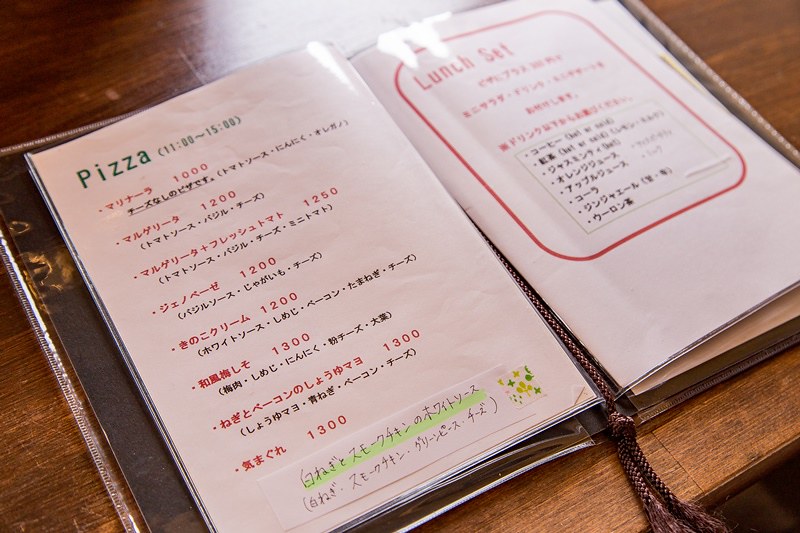 Pizza (11:00～15:00)
・マリナーラ 1000
チーズなしのピザです。(トマトソース・にんにく・オレガノ)
・マルゲリータ 1200
(トマトソース・バジル・チーズ)
・マルゲリータ+フレッシュトマト 1250
(トマトソース・バジル・チーズ・ミニトマト)
・ジェノベーゼ 1200
(バジルソース・じゃがいも・チーズ)
・きのこクリーム 1200
(ホワイトソース・しめじ・ベーコン・たまねぎ・チーズ)
・和風梅しそ 1300
(梅肉・しめじ・にんにく・粉チーズ・大葉)
・ねぎとベーコンのしょうゆマヨ 1300
(しょうゆマヨ・青ねぎ・ベーコン・チーズ)
・気まぐれ 1300
(白ねぎとスモークチキンのホワイトソース
(白ねぎ・スモークチキン・グリーンピース・チーズ)
Lunch Set
ピザにプラス
ミニサラダ・ドリンク・ミニデザートを
お付けします。
※ドリンク以下からお選びください。
・コーヒー (hot or cold)
・紅茶 (hot or cold) (レモン・ミルク)
・ジャスミンティ (hot)
・オレンジジュース
・アップルジュース
・コーラ
・ジンジャエール (甘・辛)
・ウーロン茶